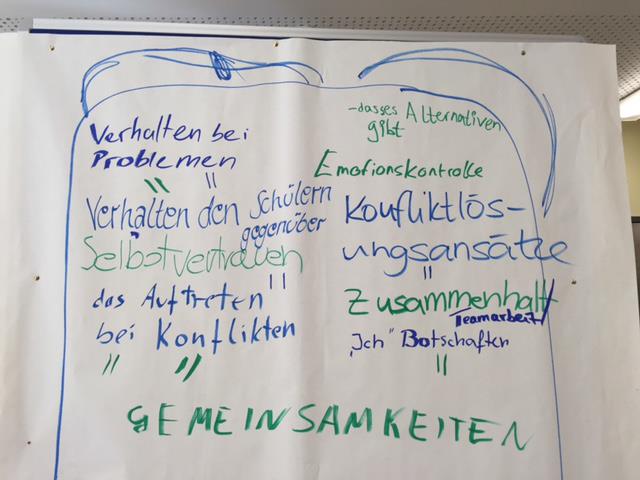 Verhalten bei
Problemen
Verhalten den Schülern
gegenüber
Selbstvertrauen
das Auftreten
bei Konflikten
-dasses Alternativen
gibt
Emotionskontrolle
Konfliktlös-
ungsansätze
Zusammenhalt
Teamarbeit
"Ich" Botschaften
GEMEINSAMKEITEN